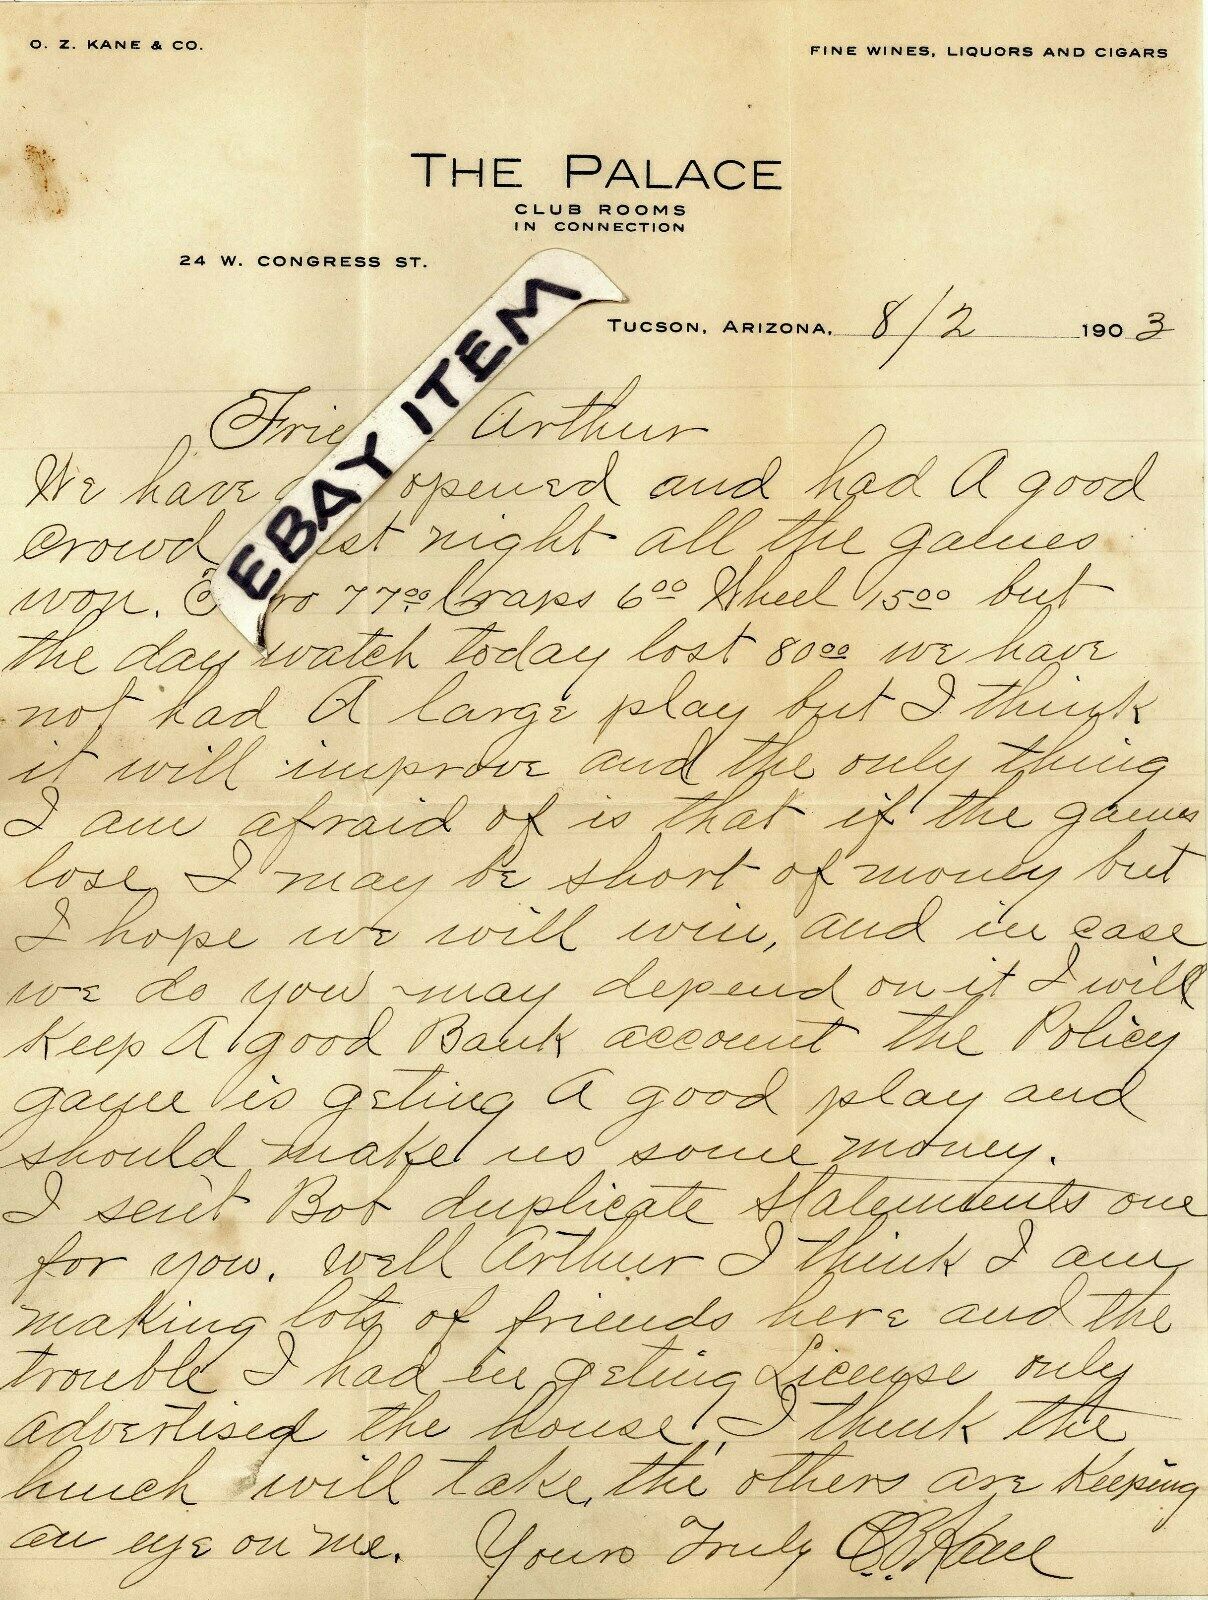 O. Z. KANE & CO.
FINE WINES, LIQUORS AND CIGARS
THE PALACE
CLUB ROOMS
IN CONNECTION
24 W. CONGRESS ST.
EBAY ITEM
TUCSON, ARIZONA, 8/2 1903
Arthur
We have opened and had A good
crowd night all the games
won. 77.00 Craps 6.00 Wheel 15.00 but
the day watch today lost 80.00 we have
not had A large play but I think
it will improve and the only thing
I am afraid of is that if the games
lose I may be short of money but
I hope we will win, and in case
we do you may depend on it I will
Keep A good Bank account the Policy
game is geting A good play and
should make us some money.
I sent Bob duplicate Statements one
for you. Well Arthur I think I am
making lots of friends here and the
trouble I had in geting License only
advertised the house, I think the
lunch will take, the others are Keeping
an eye on me. Yours Truly Kane